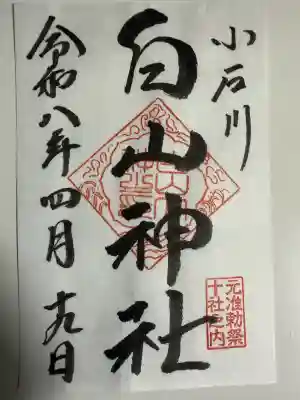 小石川
元准勅祭
十社之内
白山神社
令和八年四月十九日